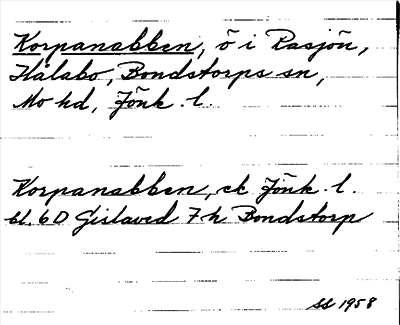 Korpanabben, ö i Rasjön,
Hålabo, Bondstorps sn,
Mo hd, Jönk. l.
Korpanabben, ek Jönk. l.
bl. 6D Gislaved 7h Bondstorp
SS 1958